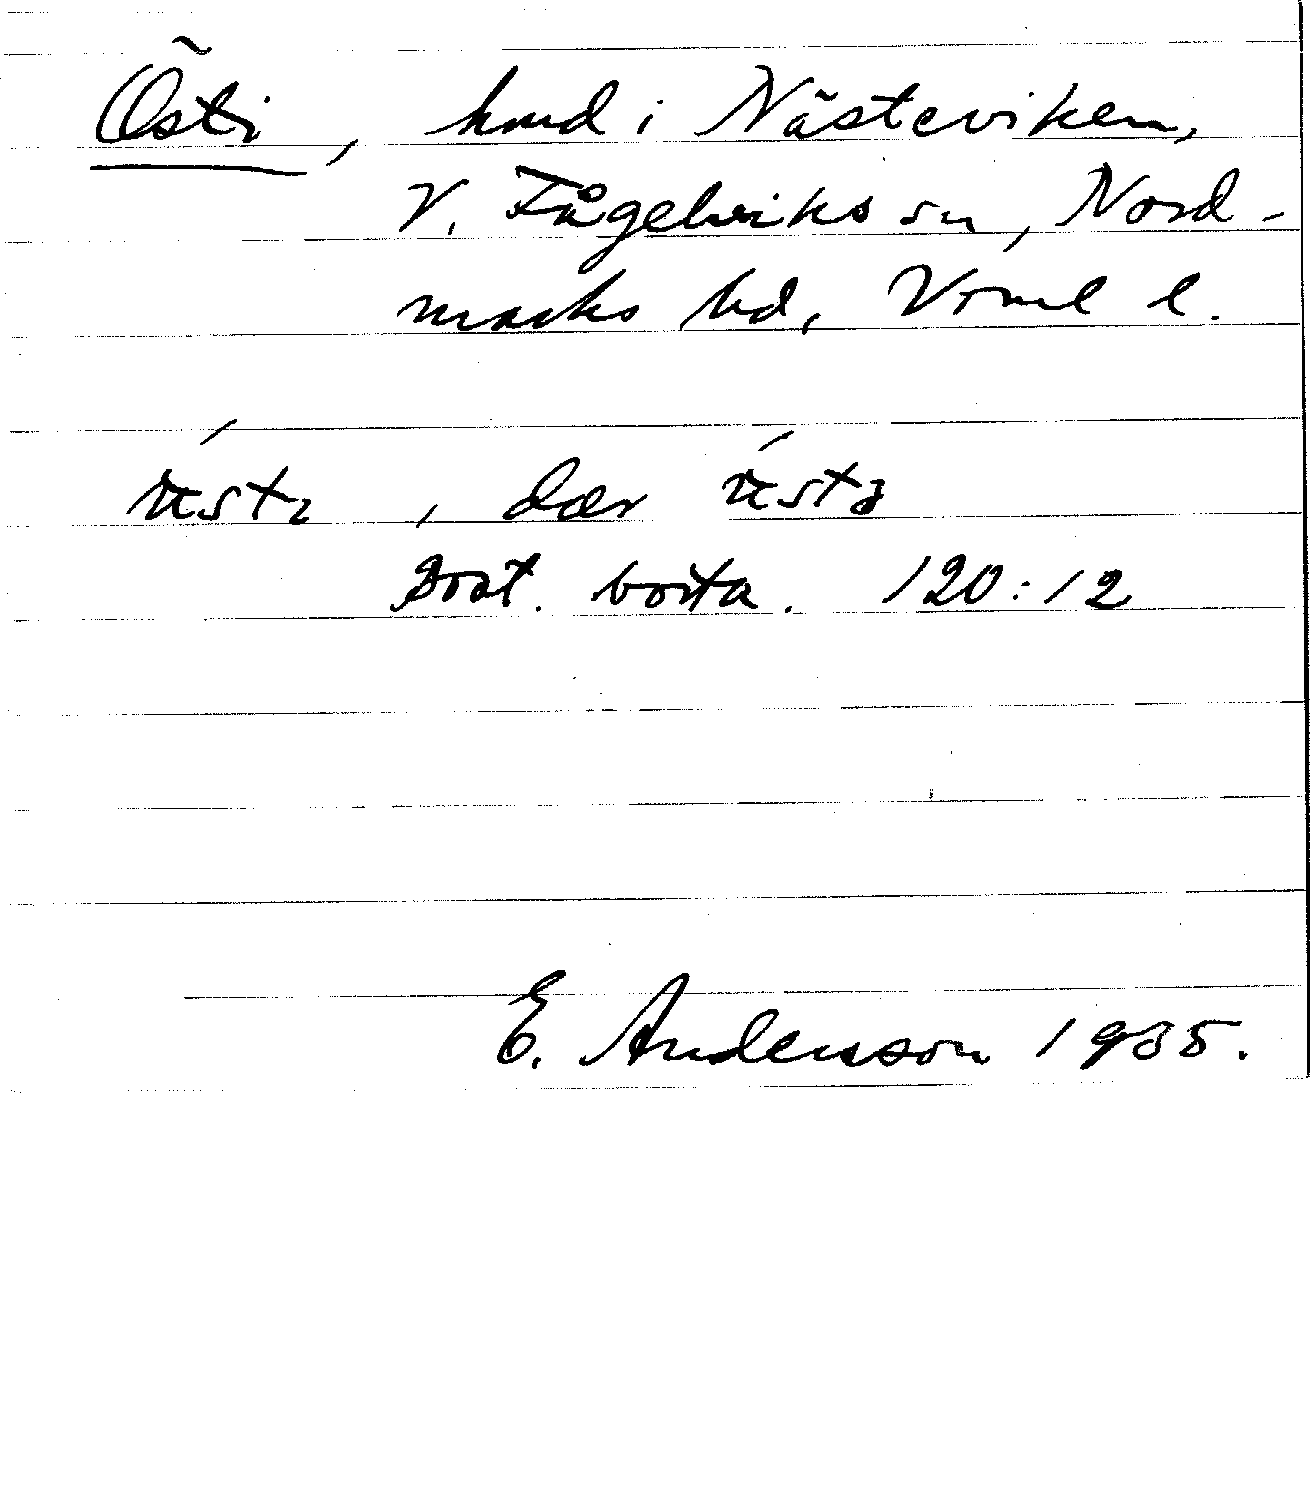 Östi, hmd i Nästeviken,
V. Fågelviks sn, Nord-
marks hd, Vrml l.
östi, där östa
Bost. borta. 120:12
E. Andersson 1935.